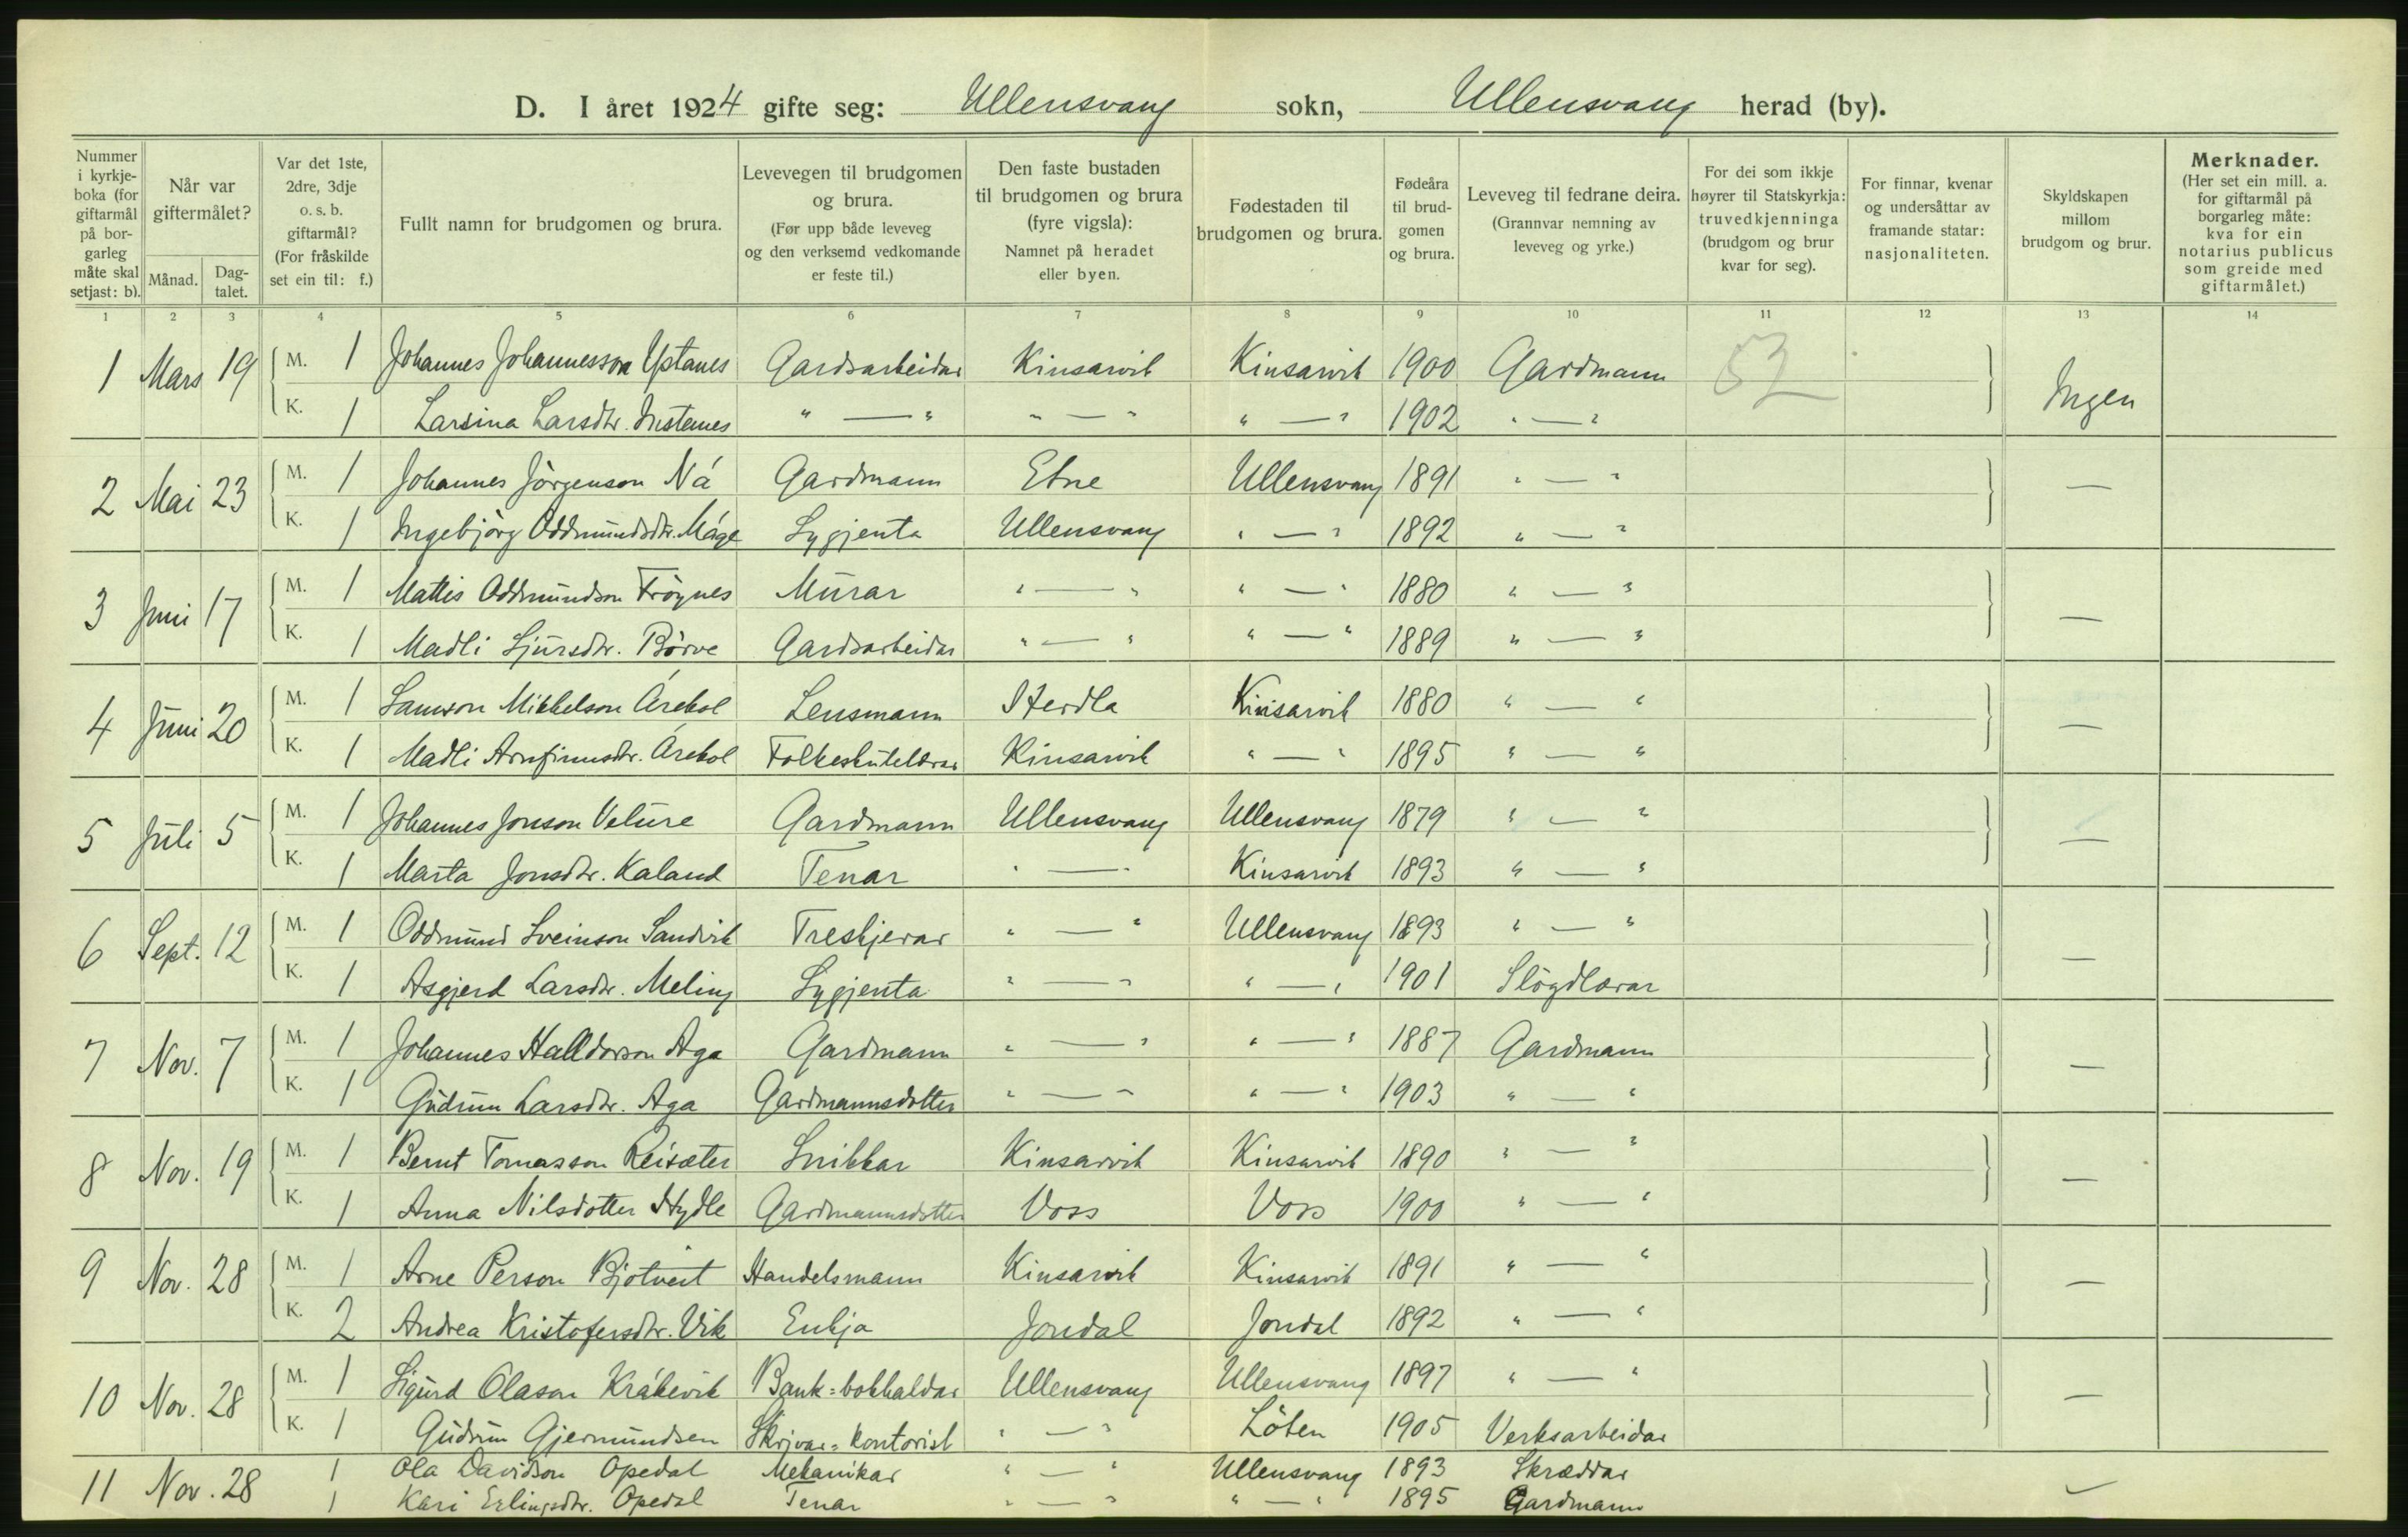 D. I året 1924 gifte seg: Ullensvang sokn, Ullensvang herad (by).
Nummer i kyrkje-boka (for giftarmål på bor-garleg måte skal setjast: b). | Når var giftermålet? Månad. Dag-talet. | Var det 1ste, 2dre, 3dje o. s. b. giftarmål? (For fråskilde set ein til: f.) | Fullt namn for brudgomen og brura. | Levevegen til brudgomen og brura. (Før upp både leveveg og den verksemd vedkomande er feste til.) | Den faste bustaden til brudgomen og brura (fyre vigsla): Namnet på heradet eller byen. | Fødestaden til brudgomen og brura. | Fødeåra til brud-gomen og brura. | Leveveg til fedrane deira. (Grannvar nemning av leveveg og yrke.) | For dei som ikkje høyrer til Statskyrkja: truvedkjenninga (brudgom og brur kvar for seg). | For finnar, kvenar og undersåttar av framande statar: nasjonaliteten. | Skyldskapen millom brudgom og brur. | Merknader. (Her set ein mill. a. for giftarmål på borgarleg måte: kva for ein notarius publicus som greide med giftarmålet.)
1 2 3 4 5 6 7 8 9 10 11 12 13 14
1 Mars 19 M. 1 Johannes Johannesson Ystanes Gardsarbeidar Kinsarvik Kinsarvik 1900 Gardmann 52 Ingen
K. 1 Larsina Larsdtr. Instenes " — " " — " " — " 1902 " — "
2 Mai 23 M. 1 Johannes Jörgenson Ná Gardmann Etne Ullensvang 1891 " — " —
K. 1 Ingebjörg Oddmundsdtr. Máge Sygjenta Ullensvang " — " 1892 " — "
3 Juni 17 M. 1 Mattis Oddmundson Fröynes Murar " — " " — " 1880 " — " —
K. 1 Madli Sjursdtr. Börve Gardsarbeidar " — " " — " 1889 " — "
4 Juni 20 M. 1 Samson Mikkelson Árekol Lensmann Herdla Kinsarvik 1880 " — " —
K. 1 Madli Arnfinnsdtr. Árekol Folkeskulelærar Kinsarvik " — " 1895 " — "
5 Juli 5 M. 1 Johannes Jonson Velure Gardmann Ullensvang Ullensvang 1879 " — " —
K. 1 Marta Jonsdtr. Kaland Tenar " — " Kinsarvik 1893 " — "
6 Sept. 12 M. 1 Oddmund Sveinson Sandvik Treskjerar " — " Ullensvang 1893 " — " —
K. 1 Asgjerd Larsdtr. Meling Sygjenta " — " " — " 1901 Slögdlærar
7 Nov. 7 M. 1 Johannes Halldorson Aga Gardmann " — " " — " 1887 Gardmann —
K. 1 Gudrun Larsdtr. Aga Gardmannsdotter " — " " — " 1903 " — "
8 Nov. 19 M. 1 Bernt Tomasson Reisæter Snikkar Kinsarvik Kinsarvik 1890 " — " —
K. 1 Anna Nilsdotter Hydle Gardmannsdotter Voss Voss 1900 " — "
9 Nov. 28 M. 1 Arne Person Bjotveit Handelsmann Kinsarvik Kinsarvik 1891 " — " —
K. 2 Andrea Kristofersdtr. Vik Enkja Jondal Jondal 1892 " — "
10 Nov. 28 M. 1 Sigurd Olason Krákevik Bank=bokhaldar Ullensvang Ullensvang 1897 " — " —
K. 1 Gudrun Gjermundsen Skrivar=kontorist " — " Löten 1905 Verksarbeidar
11 Nov. 28 1 Ola Davidson Opedal Mekanikar " — " Ullensvang 1893 Skræddar —
1 Kari Erlingsdtr. Opedal Tenar " — " " — " 1895 Gardmann